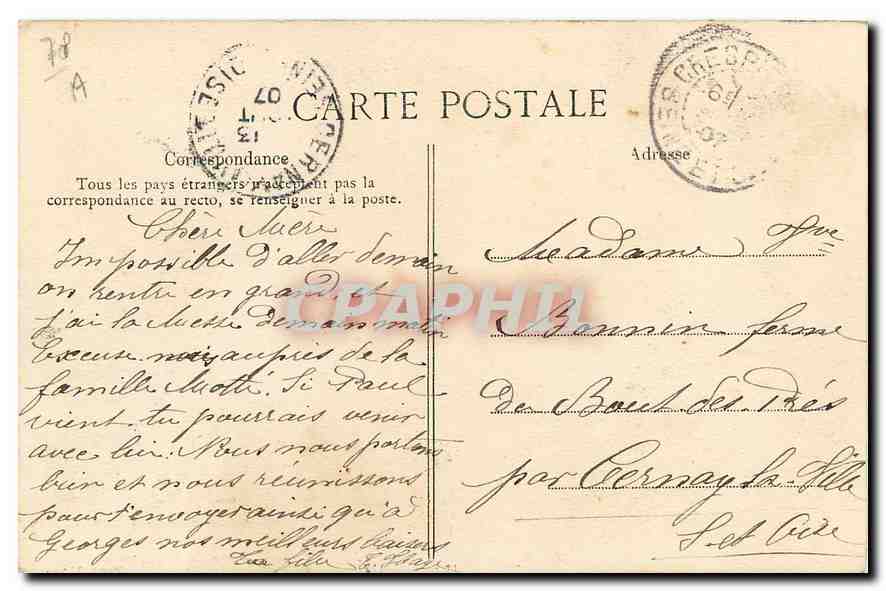 78
A
CARTE POSTALE
Correspondance
Tous les pays étrangers n'acceptent pas la
correspondance au recto, se renseigner à la poste.
Chère Mère
Impossible d'aller demain
on rentre en grand, et
j'ai la Messe demain matin
Excuse nous auprès de la
famille Motté. Si Paul
vient tu pourrais venir
avec lui. Nous nous portons
bien et nous réunissons
pour t'envoyer ainsi qu'à
Georges nos meilleurs baisers
Ta fille
Adresse
Madame Vve
Bonnin ferme
de Bout des Prés
par Cernay la Ville
S. et Oise
CERNAY
13
07
CRESP
07
CPAPHIL